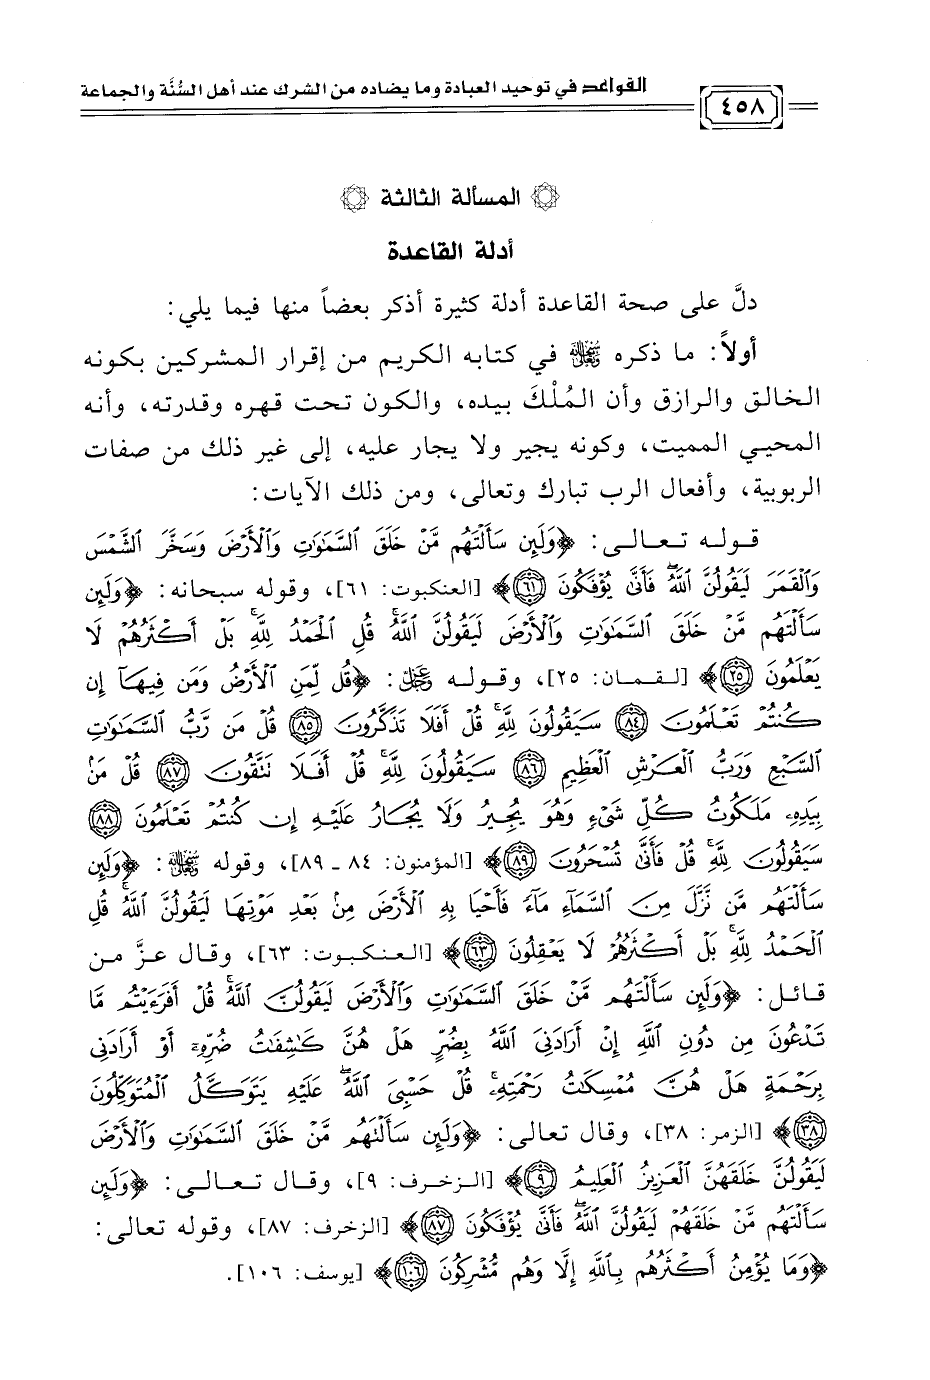 القواعد في توحيد العبادة وما يضاده من الشرك عند أهل السُّنَّة والجماعة
٤٥٨
المسألة الثالثة
أدلة القاعدة
دلَّ على صحة القاعدة أدلة كثيرة أذكر بعضاً منها فيما يلي:
أولاً: ما ذكره ﷻ في كتابه الكريم من إقرار المشركين بكونه
الخالق والرازق وأن المُلْكَ بيده، والكون تحت قهره وقدرته، وأنه
المحيي المميت، وكونه يجير ولا يجار عليه، إلى غير ذلك من صفات
الربوبية، وأفعال الرب تبارك وتعالى، ومن ذلك الآيات:
قوله تعالى: ﴿وَلَئِن سَأَلْتَهُم مَّنْ خَلَقَ ٱلسَّمَٰوَٰتِ وَٱلْأَرْضَ وَسَخَّرَ ٱلشَّمْسَ
وَٱلْقَمَرَ لَيَقُولُنَّ ٱللَّهُ ۖ فَأَنَّىٰ يُؤْفَكُونَ ۝٦١﴾ [العنكبوت: ٦١]، وقوله سبحانه: ﴿وَلَئِن
سَأَلْتَهُم مَّنْ خَلَقَ ٱلسَّمَٰوَٰتِ وَٱلْأَرْضَ لَيَقُولُنَّ ٱللَّهُ ۚ قُلِ ٱلْحَمْدُ لِلَّهِ ۚ بَلْ أَكْثَرُهُمْ لَا
يَعْلَمُونَ ۝٢٥﴾ [لقمان: ٢٥]، وقوله عز وجل: ﴿قُل لِّمَنِ ٱلْأَرْضُ وَمَن فِيهَآ إِن
كُنتُمْ تَعْلَمُونَ ۝٨٤ سَيَقُولُونَ لِلَّهِ ۚ قُلْ أَفَلَا تَذَكَّرُونَ ۝٨٥ قُلْ مَن رَّبُّ ٱلسَّمَٰوَٰتِ
ٱلسَّبْعِ وَرَبُّ ٱلْعَرْشِ ٱلْعَظِيمِ ۝٨٦ سَيَقُولُونَ لِلَّهِ ۚ قُلْ أَفَلَا تَتَّقُونَ ۝٨٧ قُلْ مَنۢ
بِيَدِهِۦ مَلَكُوتُ كُلِّ شَىْءٍ وَهُوَ يُجِيرُ وَلَا يُجَارُ عَلَيْهِ إِن كُنتُمْ تَعْلَمُونَ ۝٨٨
سَيَقُولُونَ لِلَّهِ ۚ قُلْ فَأَنَّىٰ تُسْحَرُونَ ۝٨٩﴾ [المؤمنون: ٨٤ ـ ٨٩]، وقوله ﷻ: ﴿وَلَئِن
سَأَلْتَهُم مَّن نَّزَّلَ مِنَ ٱلسَّمَآءِ مَآءً فَأَحْيَا بِهِ ٱلْأَرْضَ مِنۢ بَعْدِ مَوْتِهَا لَيَقُولُنَّ ٱللَّهُ ۚ قُلِ
ٱلْحَمْدُ لِلَّهِ ۚ بَلْ أَكْثَرُهُمْ لَا يَعْقِلُونَ ۝٦٣﴾ [العنكبوت: ٦٣]، وقال عزَّ من
قائل: ﴿وَلَئِن سَأَلْتَهُم مَّنْ خَلَقَ ٱلسَّمَٰوَٰتِ وَٱلْأَرْضَ لَيَقُولُنَّ ٱللَّهُ ۚ قُلْ أَفَرَءَيْتُم مَّا
تَدْعُونَ مِن دُونِ ٱللَّهِ إِنْ أَرَادَنِىَ ٱللَّهُ بِضُرٍّ هَلْ هُنَّ كَٰشِفَٰتُ ضُرِّهِۦٓ أَوْ أَرَادَنِى
بِرَحْمَةٍ هَلْ هُنَّ مُمْسِكَٰتُ رَحْمَتِهِۦ ۚ قُلْ حَسْبِىَ ٱللَّهُ ۖ عَلَيْهِ يَتَوَكَّلُ ٱلْمُتَوَكِّلُونَ
۝٣٨﴾ [الزمر: ٣٨]، وقال تعالى: ﴿وَلَئِن سَأَلْتَهُم مَّنْ خَلَقَ ٱلسَّمَٰوَٰتِ وَٱلْأَرْضَ
لَيَقُولُنَّ خَلَقَهُنَّ ٱلْعَزِيزُ ٱلْعَلِيمُ ۝٩﴾ [الزخرف: ٩]، وقال تعالى: ﴿وَلَئِن
سَأَلْتَهُم مَّنْ خَلَقَهُمْ لَيَقُولُنَّ ٱللَّهُ ۖ فَأَنَّىٰ يُؤْفَكُونَ ۝٨٧﴾ [الزخرف: ٨٧]، وقوله تعالى:
﴿وَمَا يُؤْمِنُ أَكْثَرُهُم بِٱللَّهِ إِلَّا وَهُم مُّشْرِكُونَ ۝١٠٦﴾ [يوسف: ١٠٦].